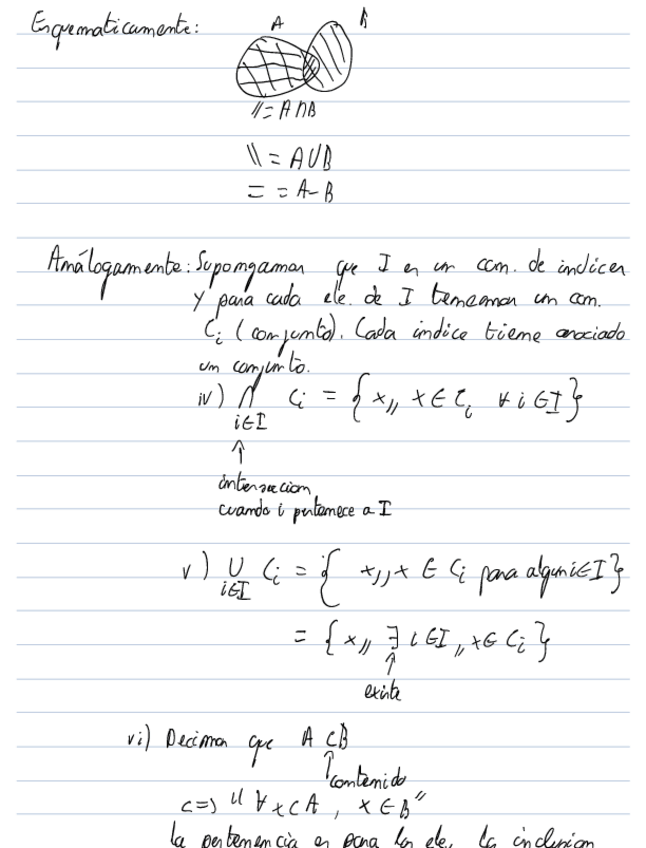 Esquematicamente:
A B
// = A ∩ B
\\ = A ∪ B
= = A - B
Análogamente: Supongamos que I es un con. de indices
y para cada ele. de I tenemos un con.
Ci (conjunto). Cada indice tiene asociado
un conjunto.
iv) ∩ Ci = { x // x ∈ Ci ∀ i ∈ I }
i ∈ I
↑
interseccion
cuando i pertenece a I
v) ∪ Ci = { x // x ∈ Ci para algun i ∈ I }
i ∈ I
= { x // ∃ i ∈ I // x ∈ Ci }
↑
existe
vi) Decimos que A ⊂ B
↑ contenido
<=> " ∀ x ⊂ A , x ∈ B "
la pertenencia es para los ele, la inclusion